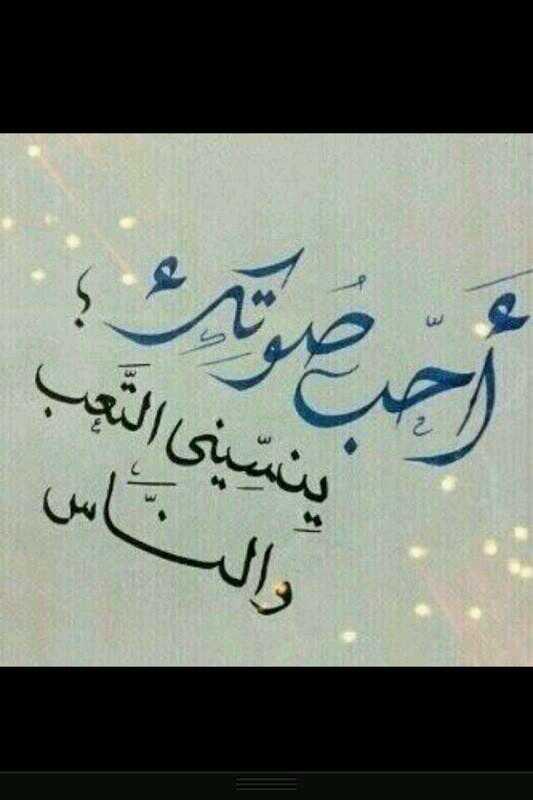 أحّب صُوتك ؛
ينسّيني التَّعب
والنَّاس